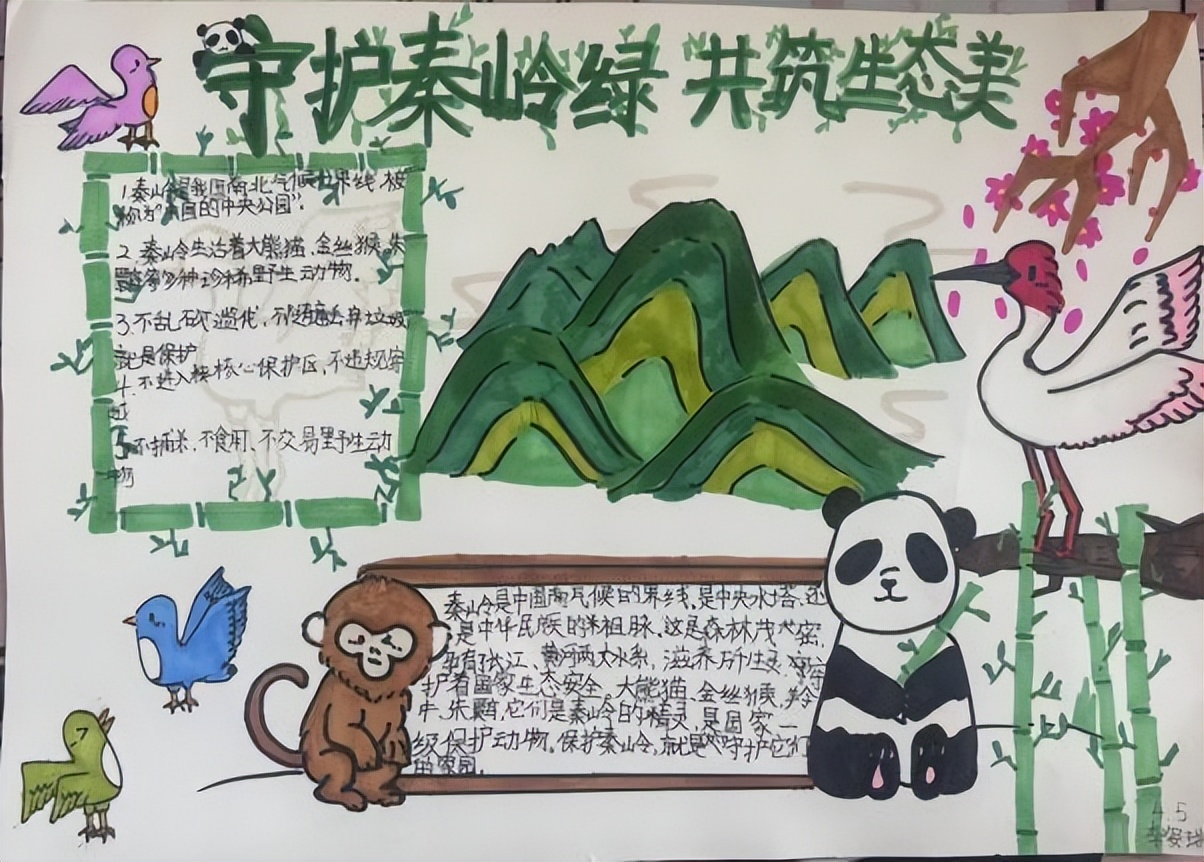 守护秦岭绿 共筑生态美
1.秦岭是我国南北气候分界线,被
称为"中国的中央公园".
2.秦岭生活着大熊猫.金丝猴.朱
鹮等多种珍稀野生动物.
3.不乱砍滥伐,不随意丢弃垃圾
就是保护
4.不进入核心保护区,不违规穿
越
5.不捕杀,不食用,不交易野生动
物
秦岭是中国南气候的界线,是中央水塔,还
是中华民族的祖脉,这是森林茂密,
有长江、黄河两大水系,滋养所生灵,守
护着国家生态安全,大熊猫,金丝猴,羚
牛,朱鹮,它们是秦岭的精灵,是国家一
级保护动物.保护秦岭,就是守护它们
的家园.
4.5
李